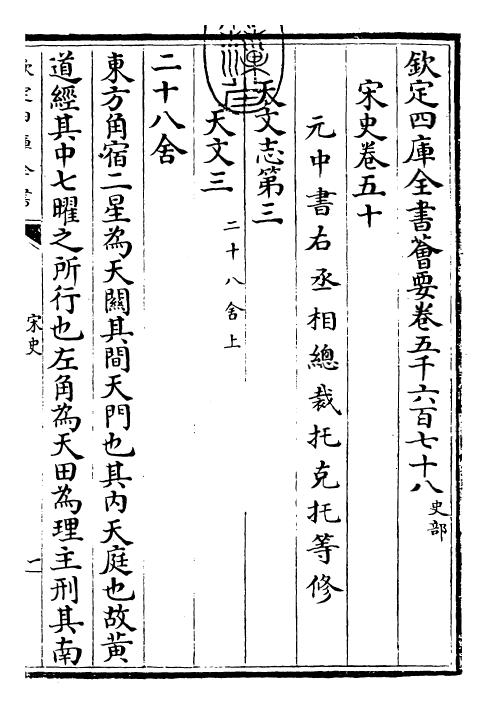 欽定四庫全書薈要卷五千六百七十八 史部
宋史卷五十
元中書右丞相總裁托克托等修
天文志第三
天文三 二十八舍上
二十八舍
東方角宿二星為天關其間天門也其內天庭也故黃
道經其中七曜之所行也左角為天田為理主刑其南
欽定四庫全書
宋史
一